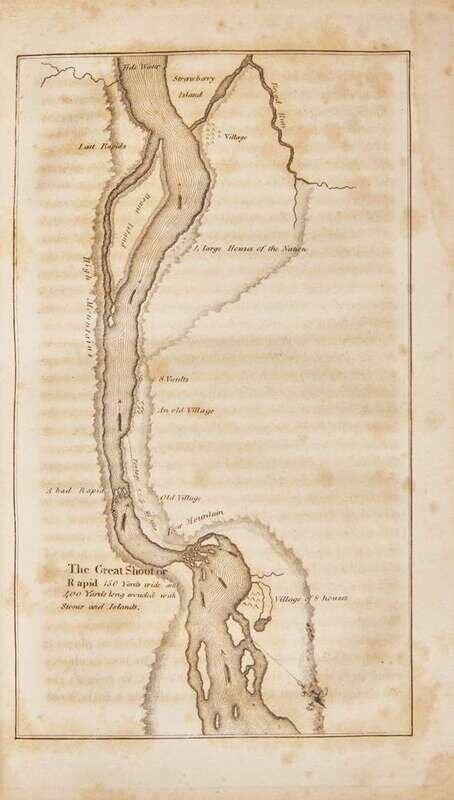 Tide Water
Strawberry
Island
Last Rapids
Village
Brant Island
High Mountains
large Houses of the Nation
8 Vaults
An old Village
A bad Rapid
Old Village
Low Mountain
The Great Shoot or
Rapid 150 Yards wide and
400 Yards long crouded with
Stones and Islands.
Village of 8 houses